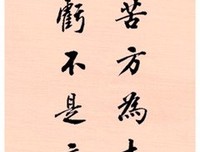 苦方為
虧不是